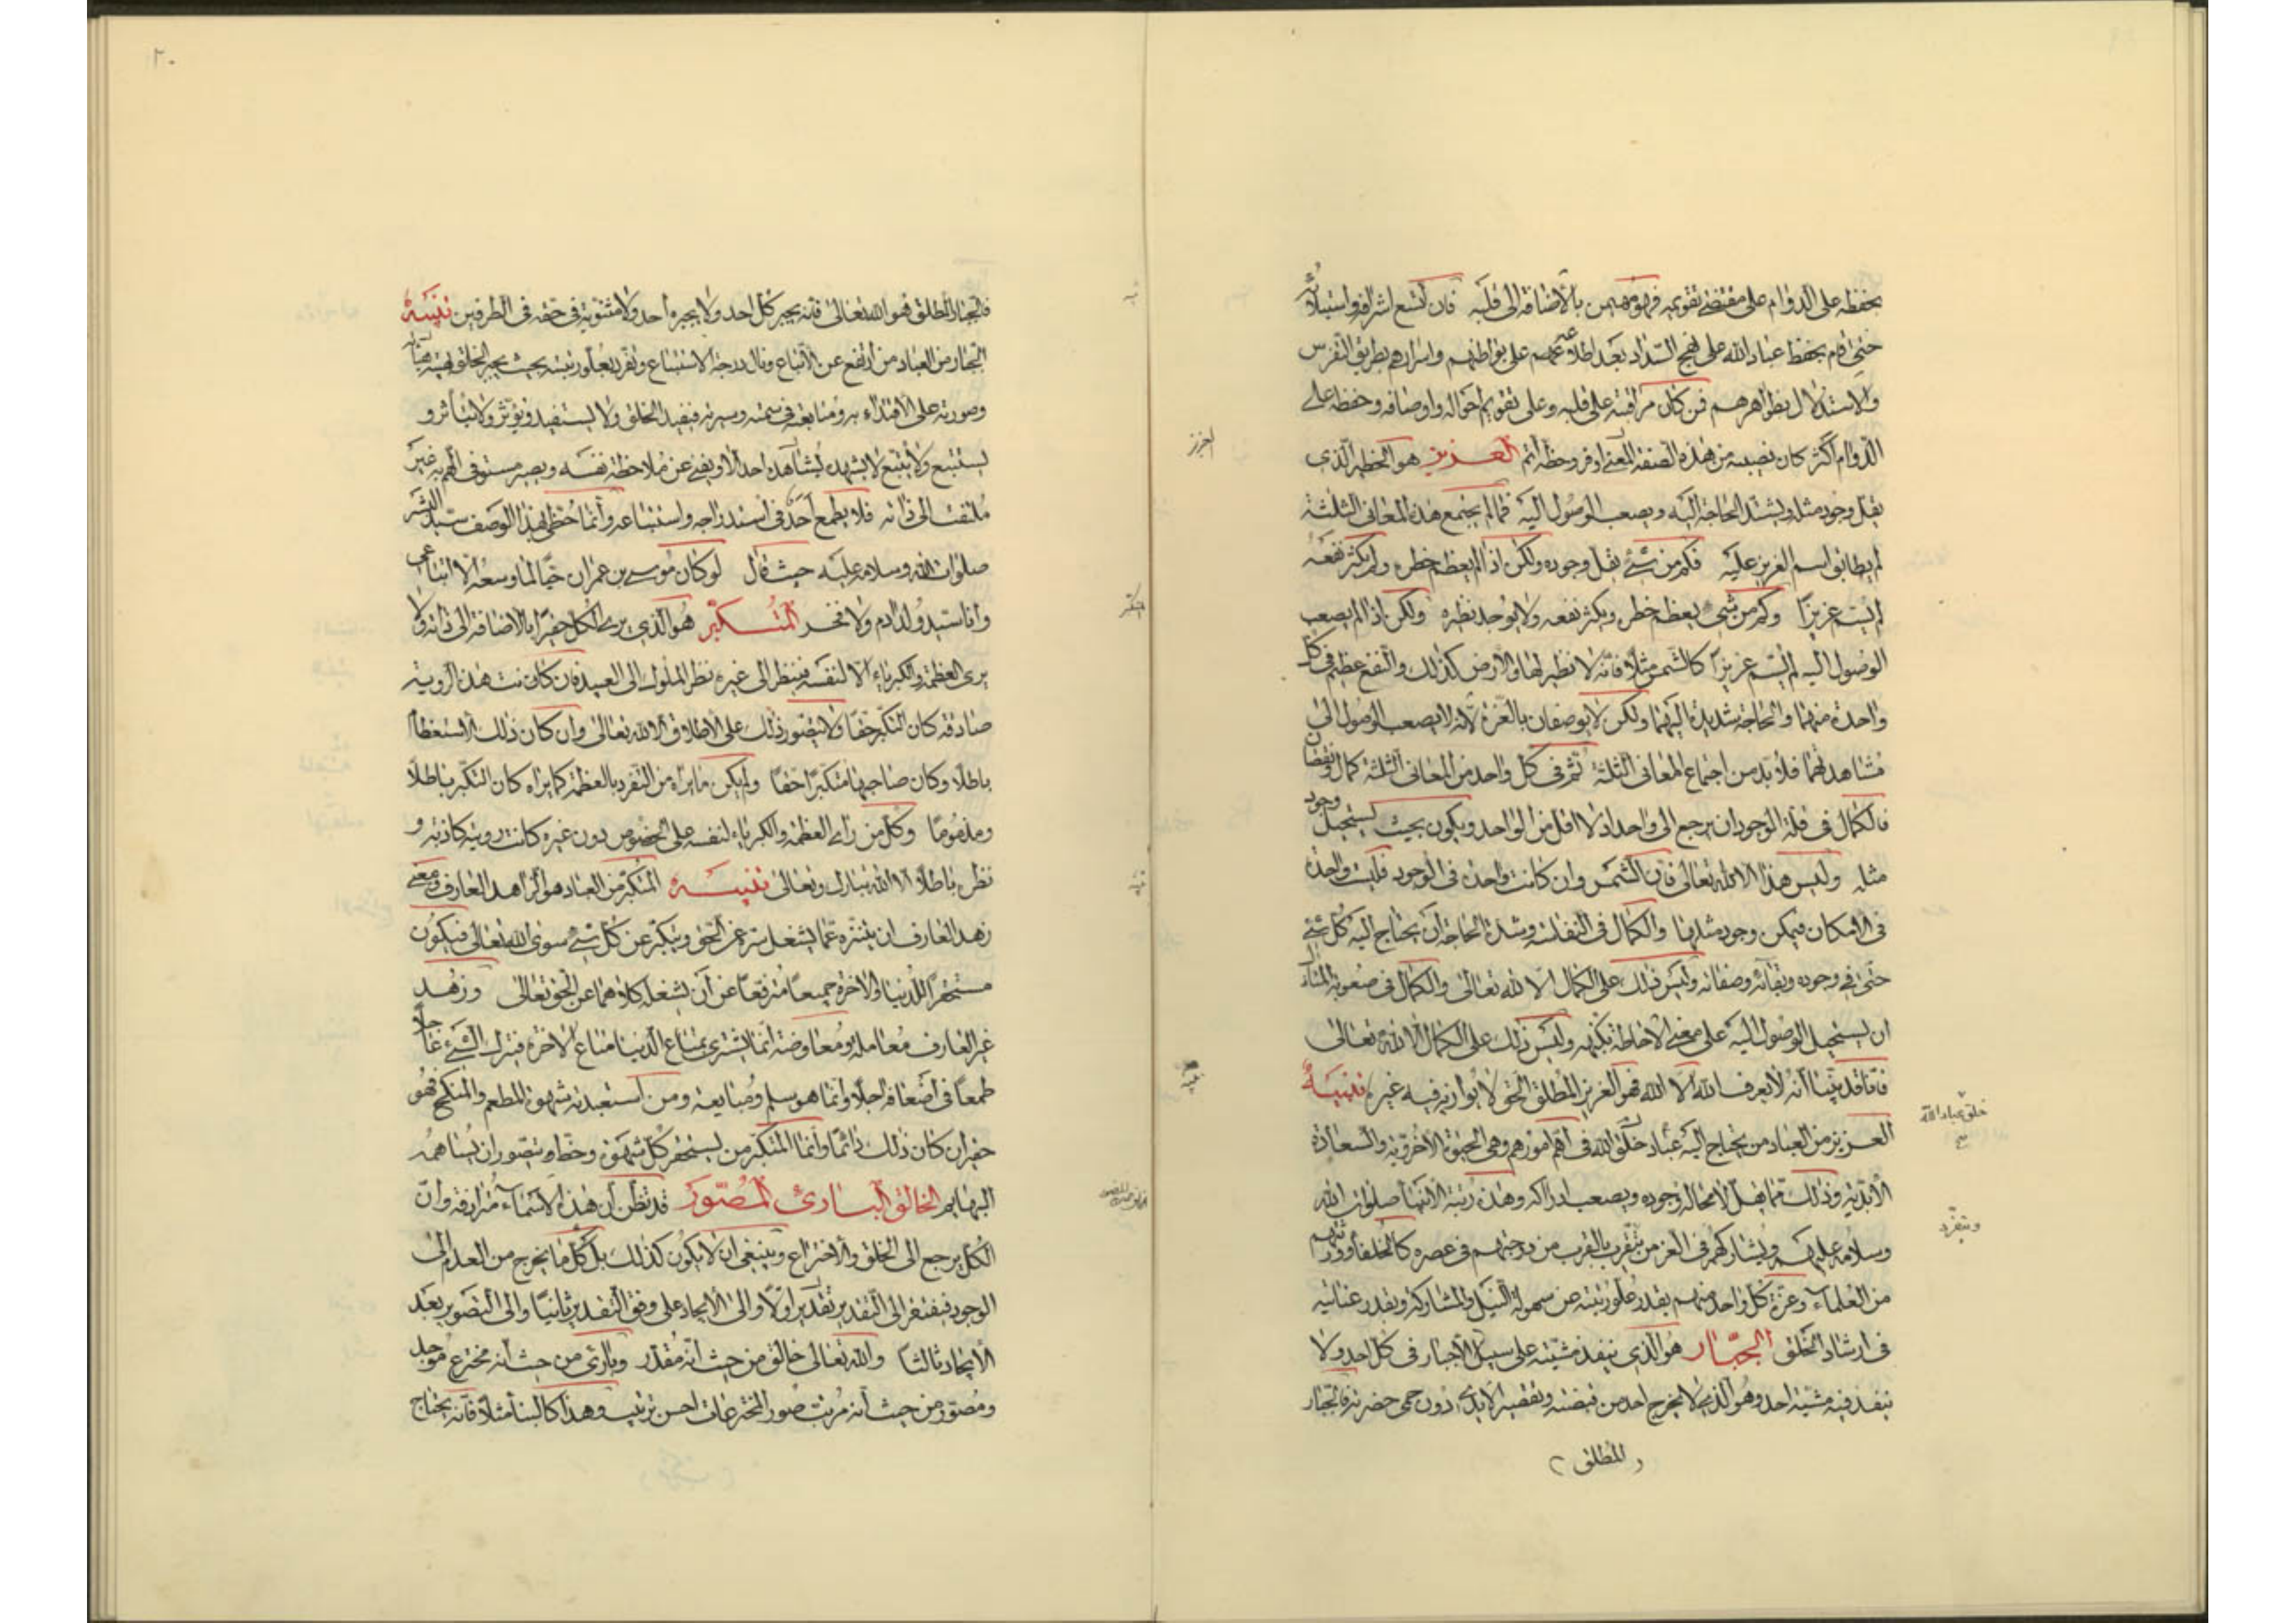 يحفظه على الدوام على مقتضى تقويمه فهو مهيمن بالاضافة الى قلبه فان اتسع اشرافه واستيلاؤه
حتى قام بحفظ عباد الله على نهج السداد بعد اطلاعهم على بواطنهم واسرارهم بطريق التفرس
والاستدلال بظواهرهم فمن كان مراقبته على قلبه وعلى تقويم احواله واوصافه وحفظه على
الدوام اكثر كان نصيبه من هذه الصفة لمعنى اوفر وحظه اتم العزيز هو الخطير الذى
يقل وجود مثله ويشتد الحاجة اليه ويصعب الوصول اليه فما لم يجتمع هذه المعانى الثلثة
لم يطابق اسم العزيز عليه فكم من شئ يقل وجوده ولكن اذا لم يعظم خطره ولم يكثر نفعه
لم يسم عزيزا وكم من شئ يعظم خطره ويكثر نفعه ولا يوجد نظيره ولكن اذا لم يصعب
الوصول اليه لم يسم عزيزا كالشمس مثلا فانه لا نظير لها والارض كذلك والنفع عظيم فى كل
واحدة منهما والحاجة شديدة اليهما ولكن لا يوصفان بالعزة لانه لا يصعب الوصول الى
مشاهدتهما فلا بد من اجتماع المعانى الثلثة ثم فى كل واحد من المعانى الثلثة كمال ونقصان
فالكمال فى قلة الوجود ان يرجع الى واحد اذ لا اقل من الواحد ويكون بحيث يستحيل وجود
مثله وليس هذا الا الله تعالى فان الشمس وان كانت واحدة فى الوجود فليست واحدة
فى الامكان فيمكن وجود مثلها والكمال فى النفاسة وشدة الحاجة ان يحتاج اليه كل شئ
حتى فى وجوده وبقائه وصفاته وليس ذلك على الكمال الا لله تعالى والكمال فى صعوبة المنال
ان يستحيل الوصول اليه على معنى الاحاطة بكنهه وليس ذلك على الكمال الا لله تعالى
فانا قد بينا انه لا يعرف الله الا الله فهو العزيز المطلق الحق لا يوازيه فيه غيره تنبيه
العزيز من العباد من يحتاج اليه عباد خلق الله فى اهم امورهم وهى الحيوة الاخروية والسعادة
الابدية وذلك مما يقل لا محالة وجوده ويصعب ادراكه وهذه رتبة الانبياء صلوات الله
وسلامه عليهم ويشاركهم فى العز من يتقرب بالقرب من درجتهم فى عصره كالخلفاء وورثتهم
من العلماء وعزة كل واحد منهم بقدر علو رتبته عن سهولة النيل والمشاركة وبقدر عنائه
فى ارشاد الخلق الجبار هو الذى ينفذ مشيته على سبيل الاجبار فى كل احد ولا
ينفذ فيه مشية احد وهو الذى لا يخرج احد من قبضته وتقصر الايدى دون حمى حضرته فالجبار
المطلق
العزيز
تنبيه
خلق عباد الله
ويتفرد
٢٠
فالجبار المطلق هو الله تعالى فانه يجبر كل احد ولا يجبره احد ولا مثنوية فى حقه فى الطرفين تنبيه
الجبار من العباد من ارتفع عن الاتباع ونال درجة الاستتباع وتفرد بعلو رتبته بحيث يجبر الخلق بهيئته
وصورته على الاقتداء به ومتابعته فى سمته وسيرته فيفيد الخلق ولا يستفيد ويؤثر ولا يتأثر و
يستتبع ولا يتبع لا يشهد يشاهده احد الا ويفنى عن ملاحظة نفسه ويصير مستوفى الهم به غير
ملتفت الى ذاته فلا يطمع احد فى استدراجه واستتباعه وانما حظى بهذا الوصف سيد البشر
صلوات الله وسلامه عليه حيث قال لو كان موسى بن عمران حيا لما وسعه الا اتباعى
وانا سيد ولد ادم ولا فخر المتكبر هو الذى يرى الكل حقيرا بالاضافة الى ذاته ولا
يرى العظمة والكبرياء الا لنفسه فينظر الى غيره نظر الملوك الى العبيد فان كانت هذه الروية
صادقة كان التكبر حقا ولا يتصور ذلك على الاطلاق الا لله تعالى وان كان ذلك الاستعظام
باطلا وكان صاحبها متكبرا حقا ولم يكن ما يراه من التفرد بالعظمة كما يراه كان التكبر باطلا
ومذموما وكل من راى العظمة والكبرياء لنفسه على الخصوص دون غيره كانت رويته كاذبة و
نظره باطلا الا الله تبارك وتعالى تنبيه المتكبر من العباد هو الزاهد العارف ومعنى
زهد العارف ان يتنزه عما يشغل سره عن الحق ويتكبر عن كل شئ سوى الله تعالى فيكون
مستحقرا للدنيا والاخرة جميعا مترفعا عن ان يشغله كلاهما عن الحق تعالى وزهد
غير العارف معاملة ومعاوضة انما يشترى بمتاع الدنيا متاع الاخرة فيترك الشئ عاجلا
طمعا فى اضعافه اجلا وانما هو سلم ومبايعة ومن استعبدته شهوة المطعم والمنكح فهو
حقير وان كان ذلك دائما وانما المتكبر من يستحقر كل شهوة وحظ ويتصور ان يساهمه
البهايم الخالق البارئ المصور قد يظن ان هذه الاسماء مترادفة وان
الكل يرجع الى الخلق والاختراع وينبغى ان لا يكون كذلك بل كل ما يخرج من العدم الى
الوجود فيفتقر الى التقدير تقدير اولا والى الايجاد على وفق التقدير ثانيا والى التصوير بعد
الايجاد ثالثا والله تعالى خالق من حيث انه مقدر وبارئ من حيث انه مخترع موجد
ومصور من حيث انه مرتب صور المخترعات احسن ترتيب وهذا كالبناء مثلا فانه يحتاج
المتكبر
تنبيه